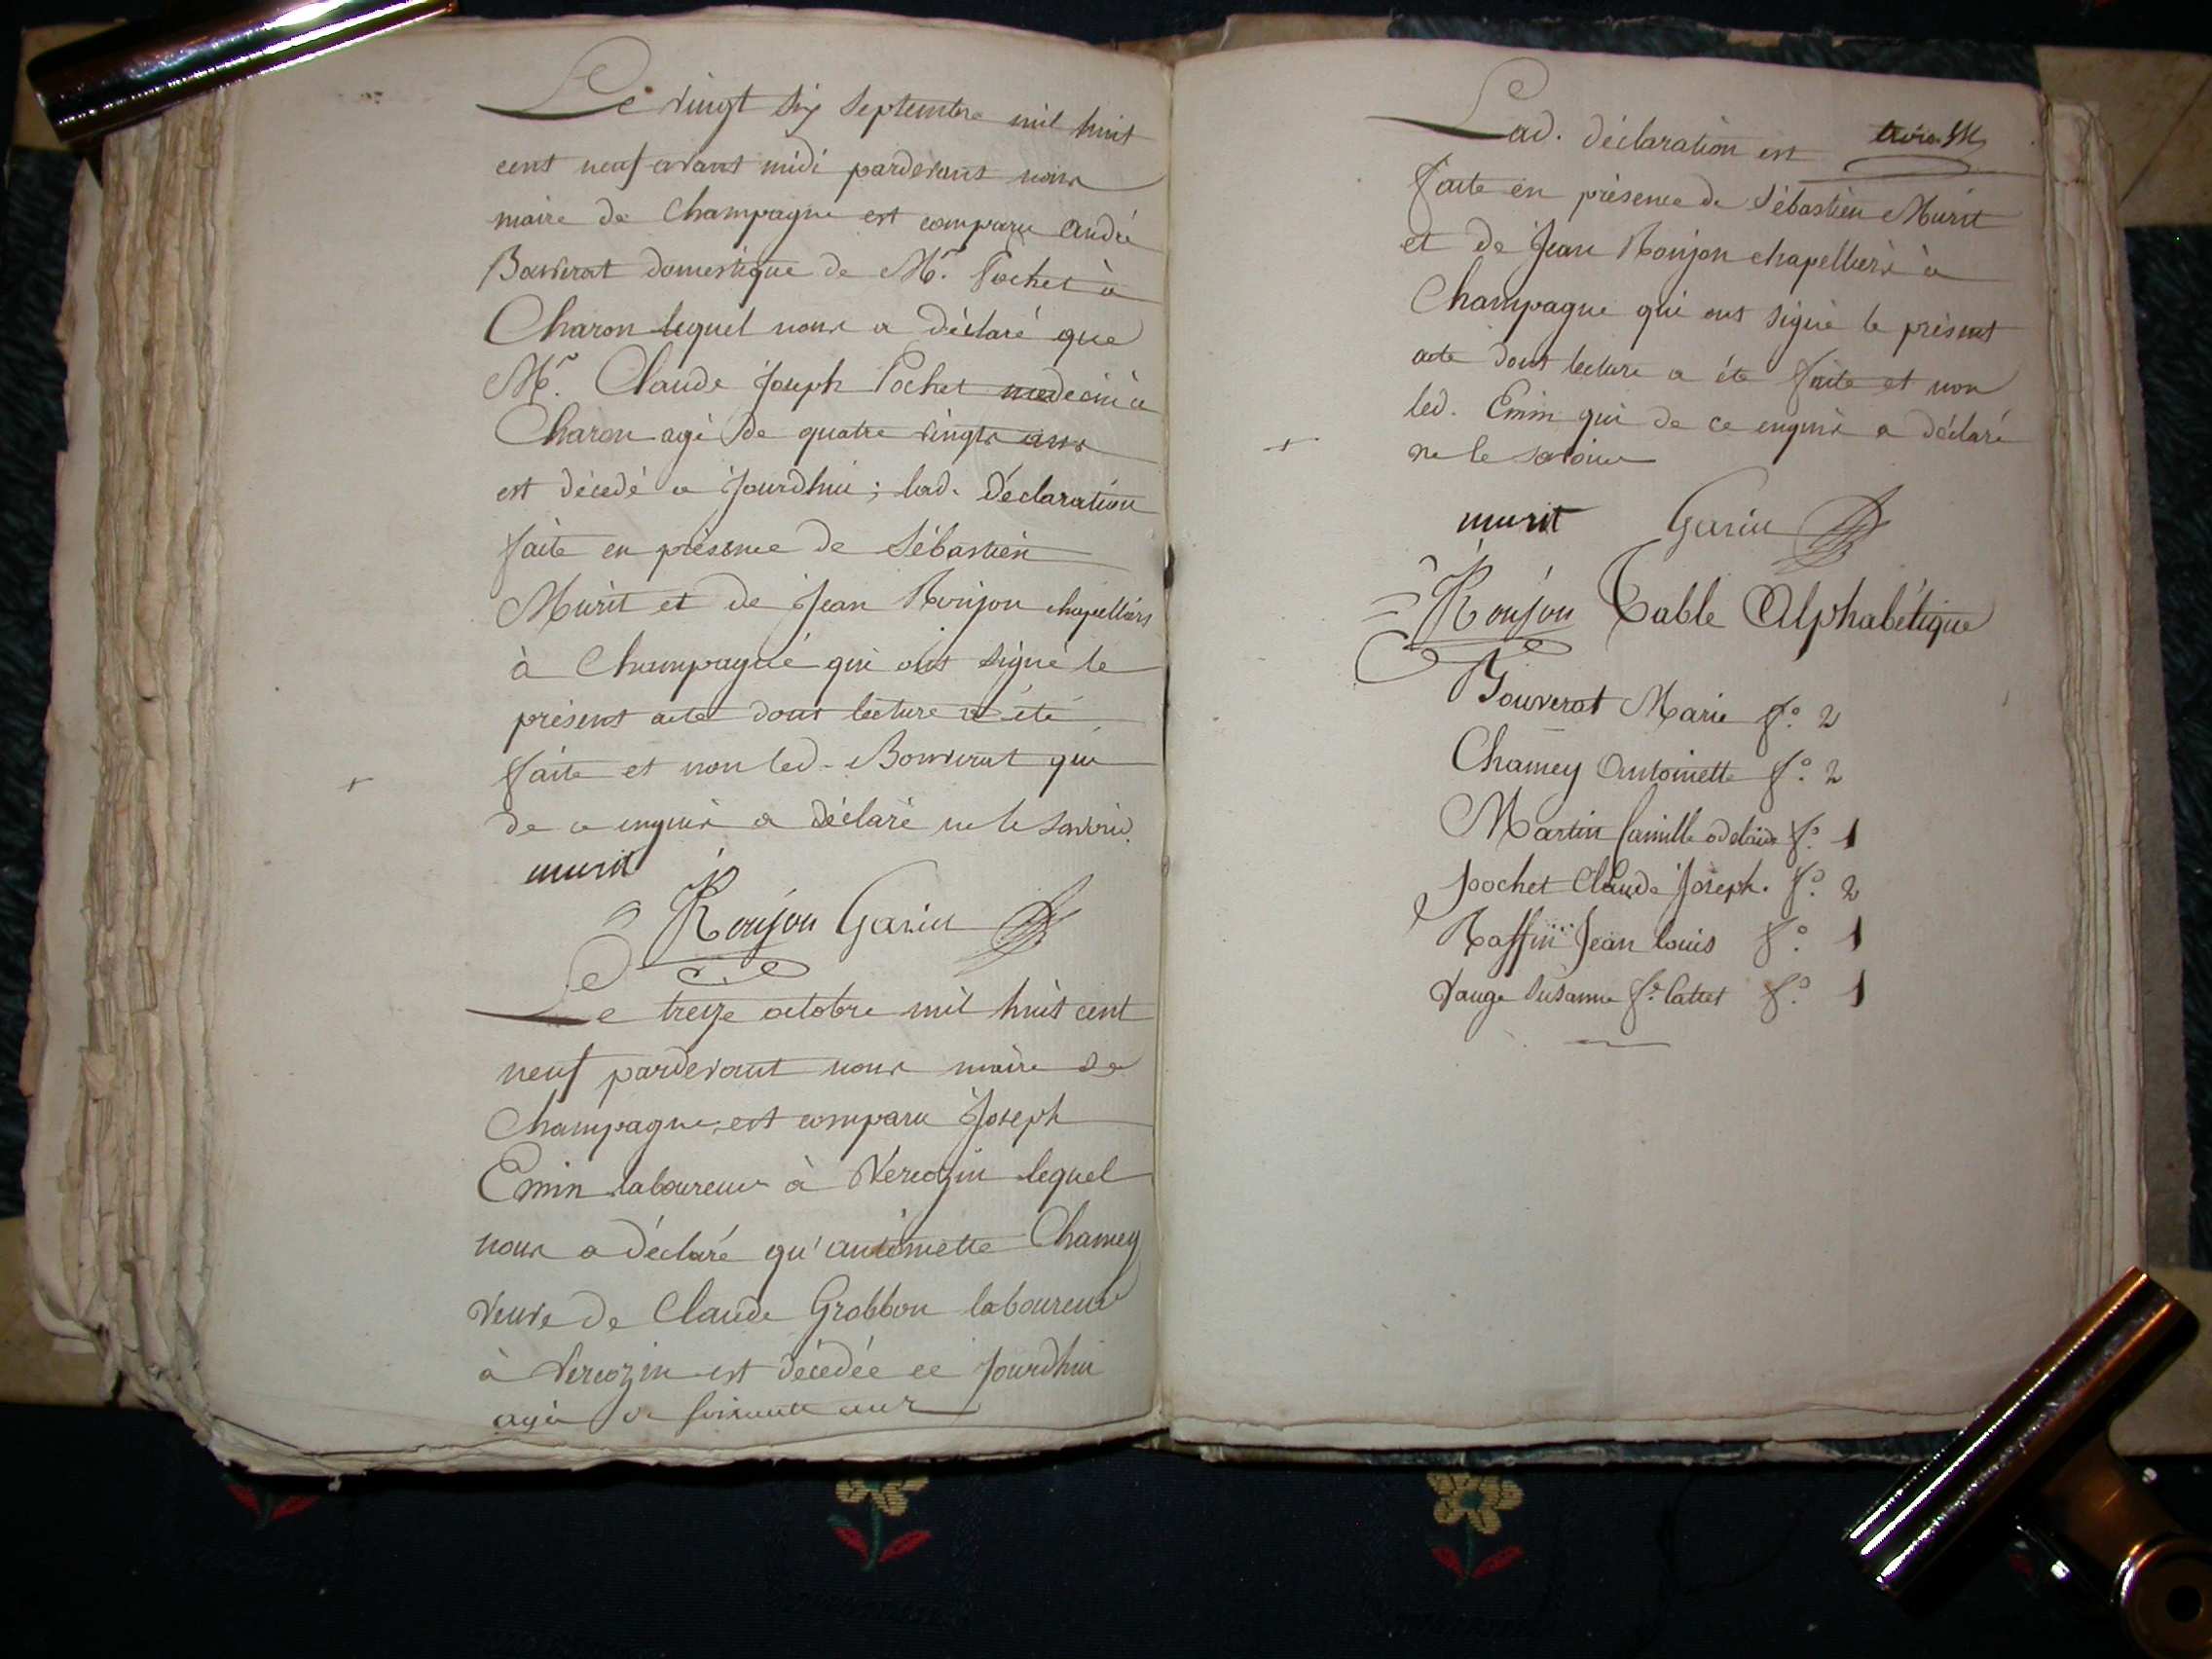 Le vingt six septembre mil huit
cent neuf avant midi pardevant nous
maire de Champagne est comparu André
Bouverat domestique de Mr. Pochet à
Charon lequel nous a déclaré que
Mr. Claude Joseph Pochet medecin à
Charon agé de quatre vingts ans
est décedé a jourdhui ; lad. déclaration
faite en présence de Sébastien
Murit et de Jean Roujon chapelliers
à Champagne qui ont signé le
présent acte dont lecture a été
faite et non led. Bouverat qui
de ce enquis a déclaré ne le savoir.
murit
Roujou Gariu
Le treize octobre mil huit cent
neuf pardevant nous maire de
Champagne est comparu Joseph
Emin laboureur à Vercozin lequel
nous a déclaré qu'antoinette Chamey
veuve de Claude Grobbon laboureur
à Vercozin est décedée ce jourdhui
agée de soixante ans
Lad. déclaration est
faite en présence de Sébastien Murit
et de Jean Roujon chapelliers à
Champagne qui ont signé le présent
acte dont lecture a été faite et non
led. Emin qui de ce enquis a déclaré
ne le savoir
murit Gariu
Roujou Table Alphabétique
Bouverat Marie fo. 2
Chamey Antoinette fo. 2
Martin Camille adelaide fo. 1
Pochet Claude Joseph. fo. 2
Raffin Jean Louis fo. 1
Vauge Susanne fe. Cattet fo. 1